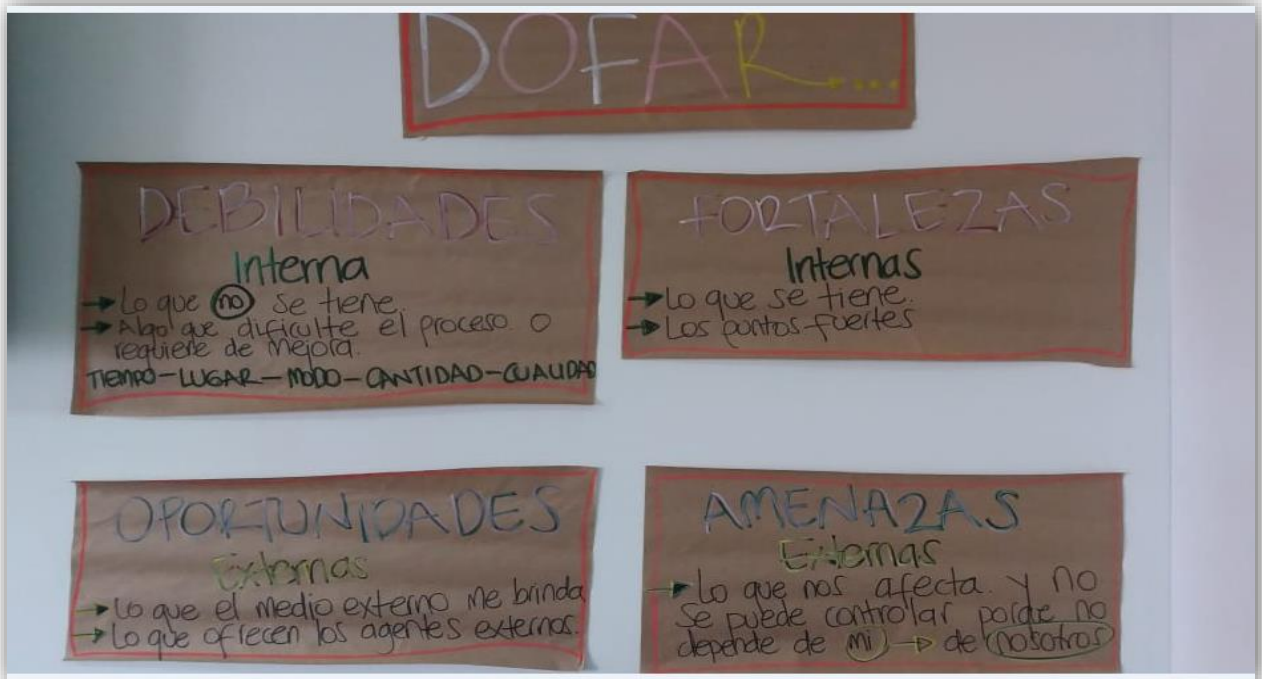 DOFAR....
DEBILIDADES
Interna
→ Lo que no se tiene.
→ Algo que dificulte el proceso o
requiere de mejora.
TIEMPO - LUGAR - MODO - CANTIDAD - CUALIDAD
FORTALEZAS
Internas
→ Lo que se tiene.
→ Los puntos fuertes
OPORTUNIDADES
Externas
→ Lo que el medio externo me brinda
→ Lo que ofrecen los agentes externos.
AMENAZAS
Externas
→ Lo que nos afecta y no
se puede controlar porque no
depende de mi → de nosotros